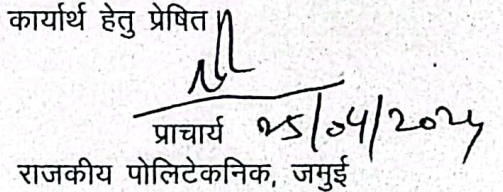 कार्यार्थ हेतु प्रेषित।
प्राचार्य 25/04/2024
राजकीय पोलिटेकनिक, जमुई